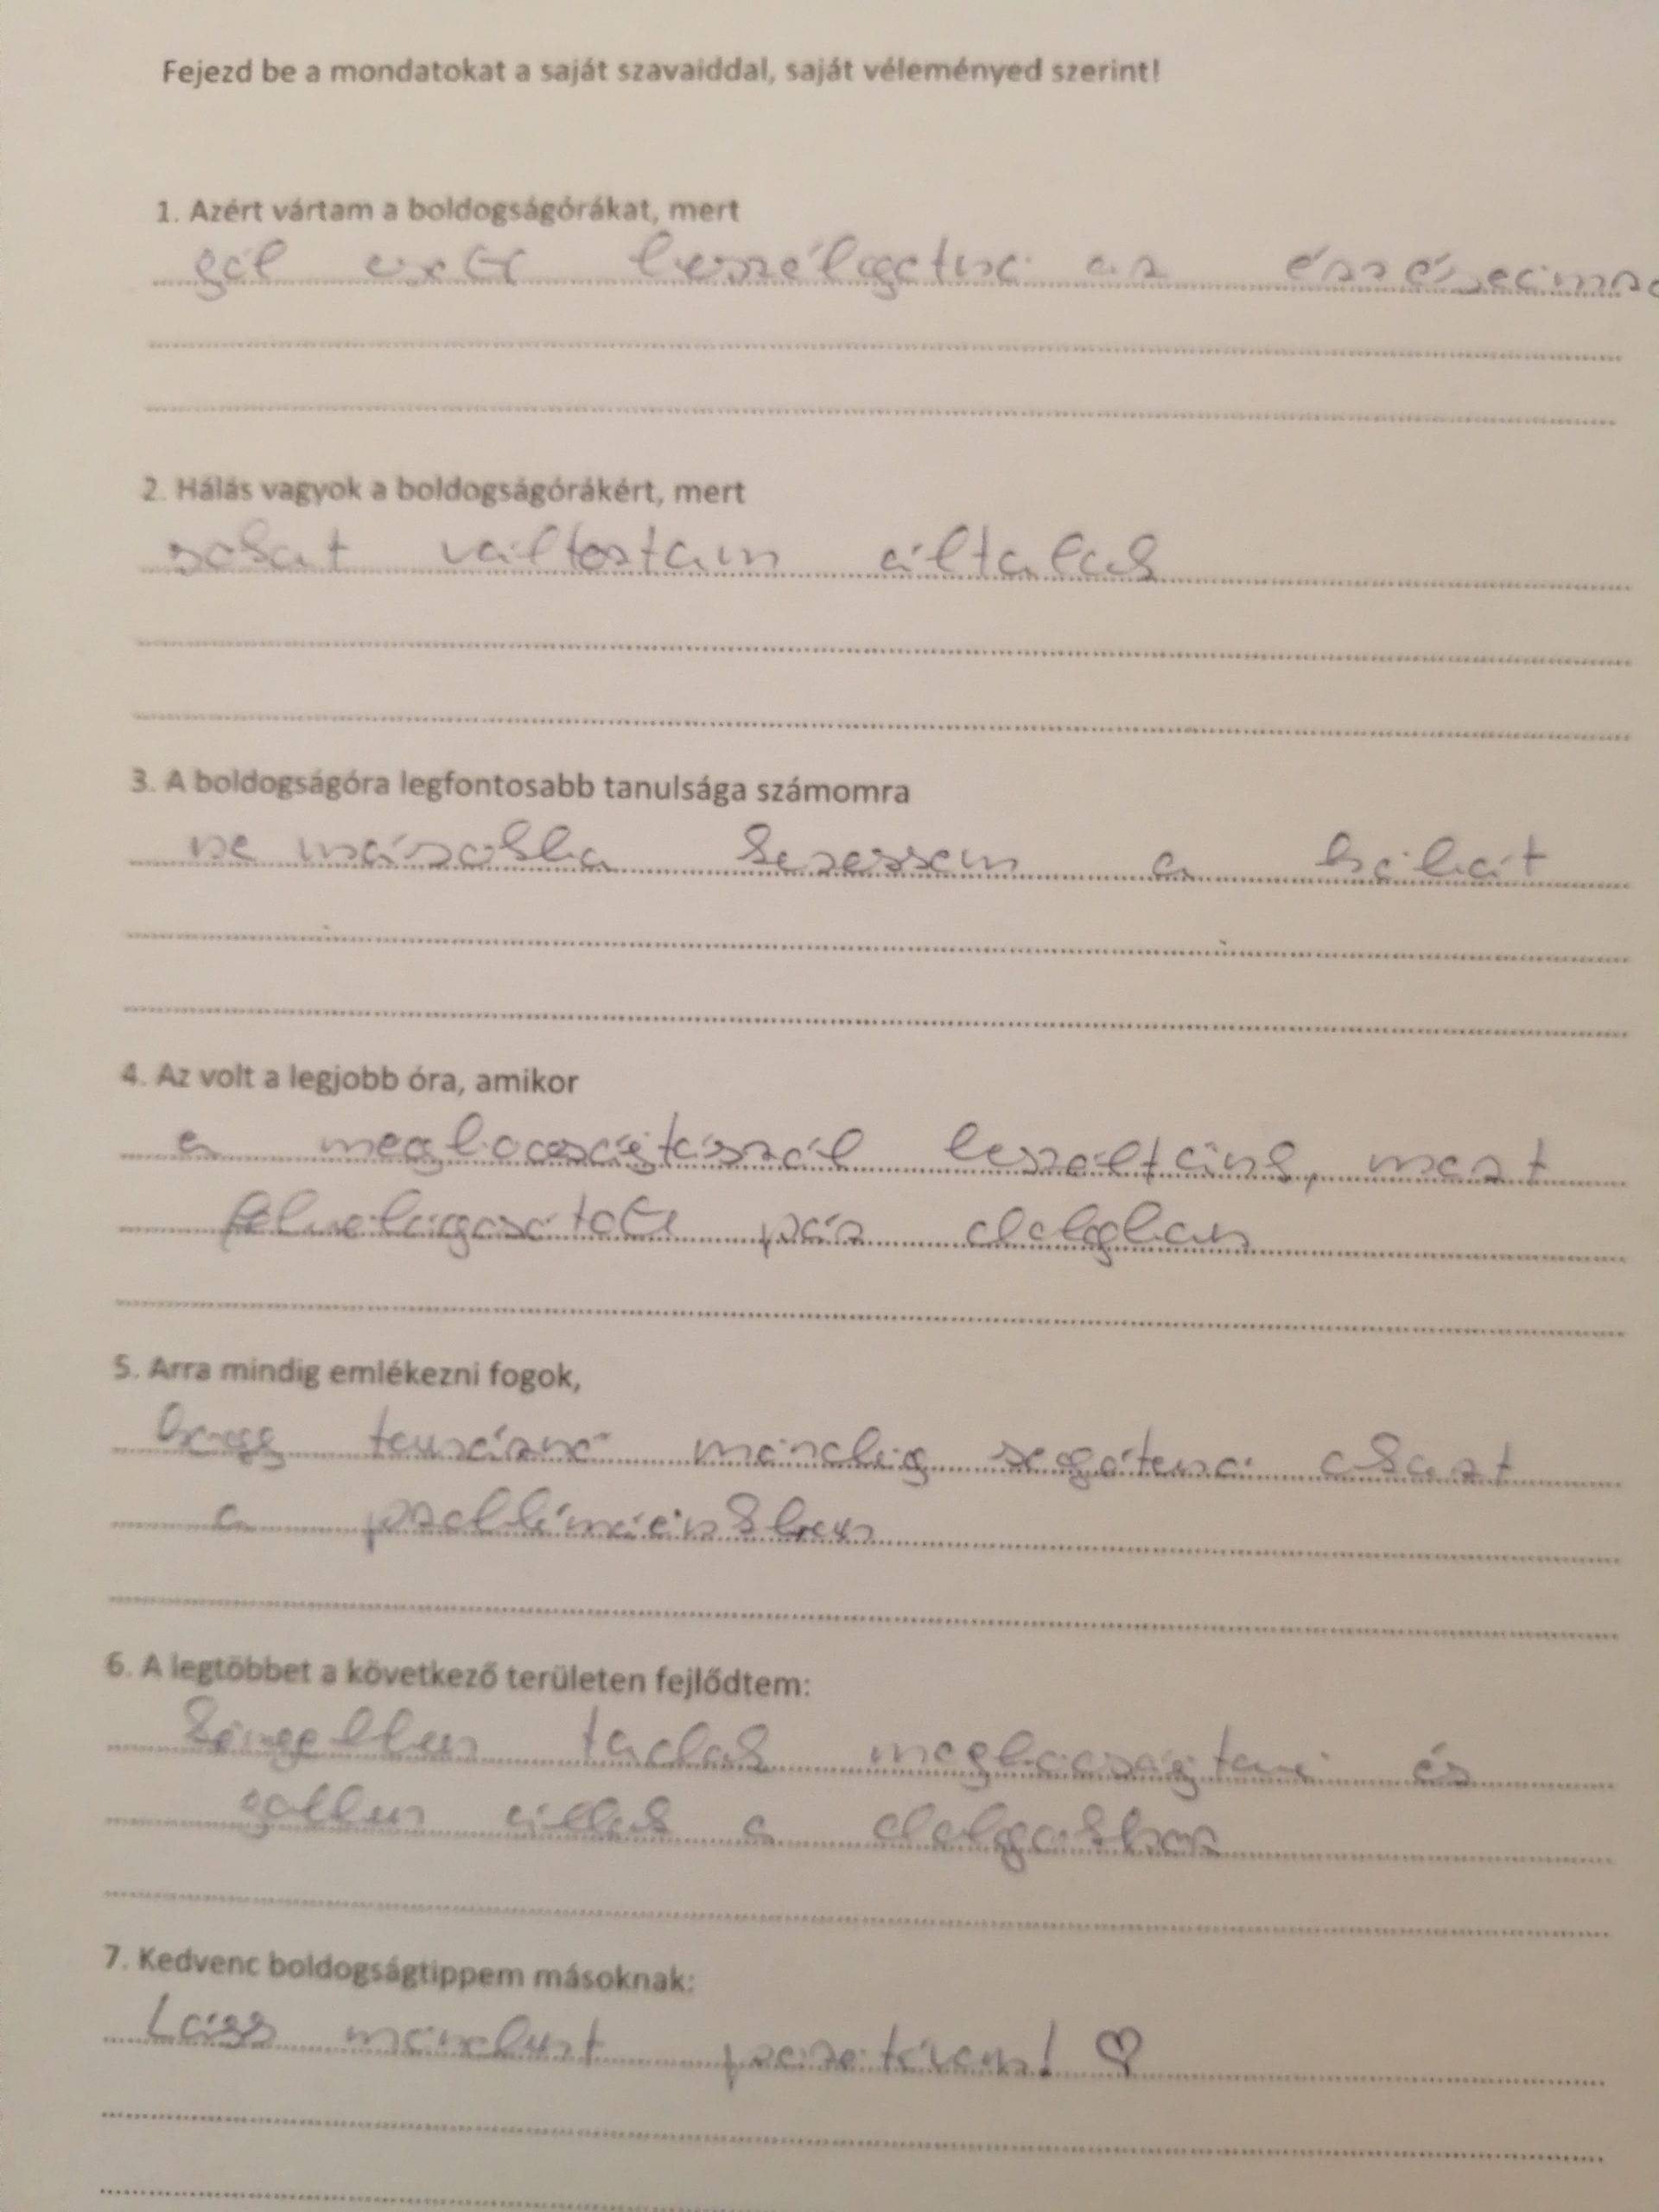 Fejezd be a mondatokat a saját szavaiddal, saját véleményed szerint!
1. Azért vártam a boldogságórákat, mert
jól esett beszélgetni az
2. Hálás vagyok a boldogságórákért, mert
sokat változtam általak
3. A boldogságóra legfontosabb tanulsága számomra
ne másokba keressem a hibát
4. Az volt a legjobb óra, amikor
a megbocsájtásról beszéltünk, mert
felvilágosított pár dologban
5. Arra mindig emlékezni fogok,
hogy tanárnő mindig segíteni akart
a problémáinkban
6. A legtöbbet a következő területen fejlődtem:
könnyebben tudok megbocsájtani és
jobban állok a dolgokhoz
7. Kedvenc boldogságtippem másoknak:
Láss mindent pozitívan! ♡